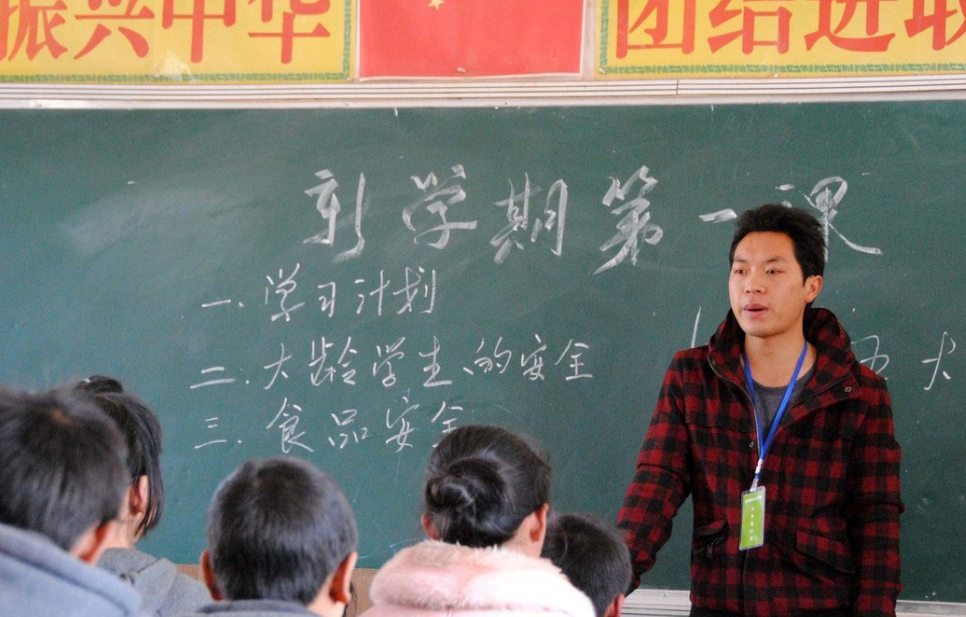 振兴中华
团结进取
新学期第一课
一.学习计划
二.大龄学生的安全
三.食品安全